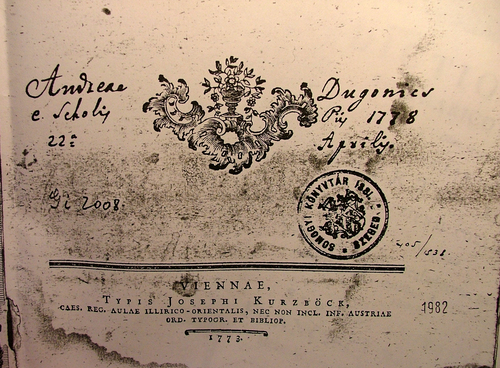 Andreae Dugonics
e Scholis Piis 1778
22ª Aprilis.
Gi 2008
SOMOGYI KÖNYVTÁR 1881. SZEGED
405/531
VIENNAE,
TYPIS JOSEPHI KURZBÖCK,
CAES. REG. AULAE ILLIRICO-ORIENTALIS, NEC NON INCL. INF. AUSTRIAE
ORD. TYPOGR. ET BIBLIOP.
1773.
1982